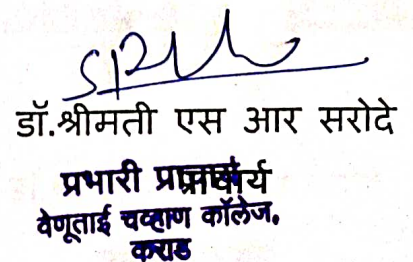 डॉ.श्रीमती एस आर सरोदे
प्रभारी प्राचार्य
वेणूताई चव्हाण कॉलेज,
कराड